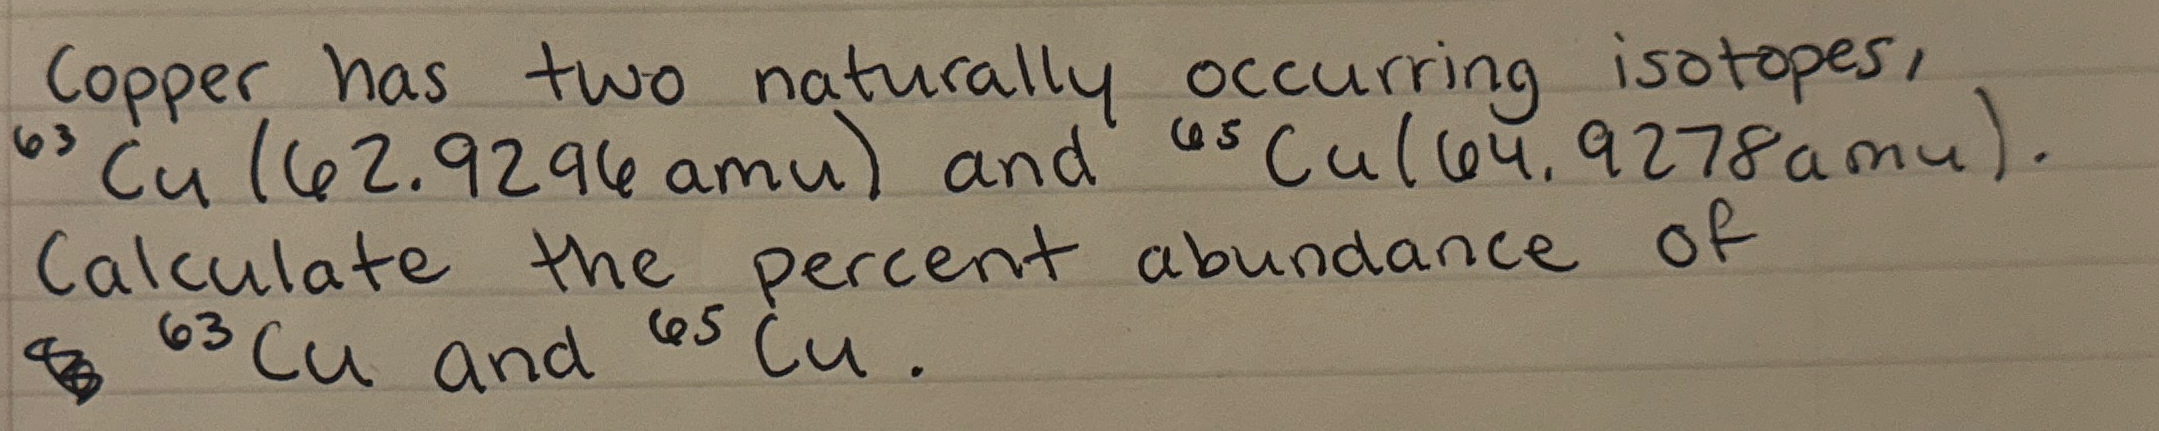 Copper has two naturally occurring isotopes,
⁶³Cu (62.9296amu) and ⁶⁵Cu (64.9278amu).
Calculate the percent abundance of
⁶³Cu and ⁶⁵Cu.